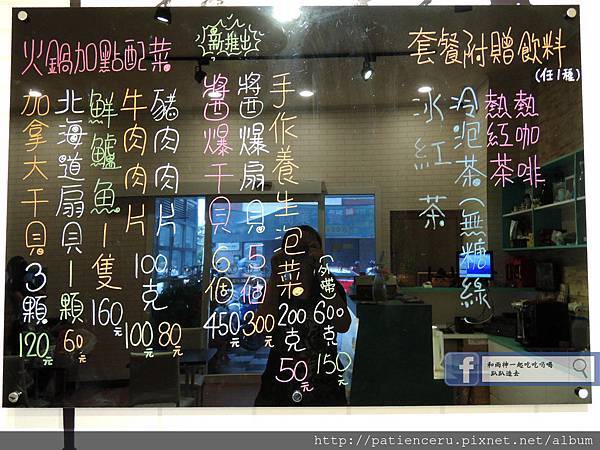 套餐附贈飲料
(任1種)
熱咖啡
熱紅茶
冷泡茶(無糖綠)
冰紅茶
新推出
手作養生泡菜 200克 50元
(外帶) 600克 150元
醬爆扇貝 5個 300元
醬爆干貝 6個 450元
火鍋加點配菜
豬肉肉片 100克 80元
牛肉肉片 100元
鮮鱸魚 1隻 160元
北海道扇貝 1顆 60元
加拿大干貝 3顆 120元
和雨神一起吃吃喝喝
趴趴造去
http://patienceru.pixnet.net/album